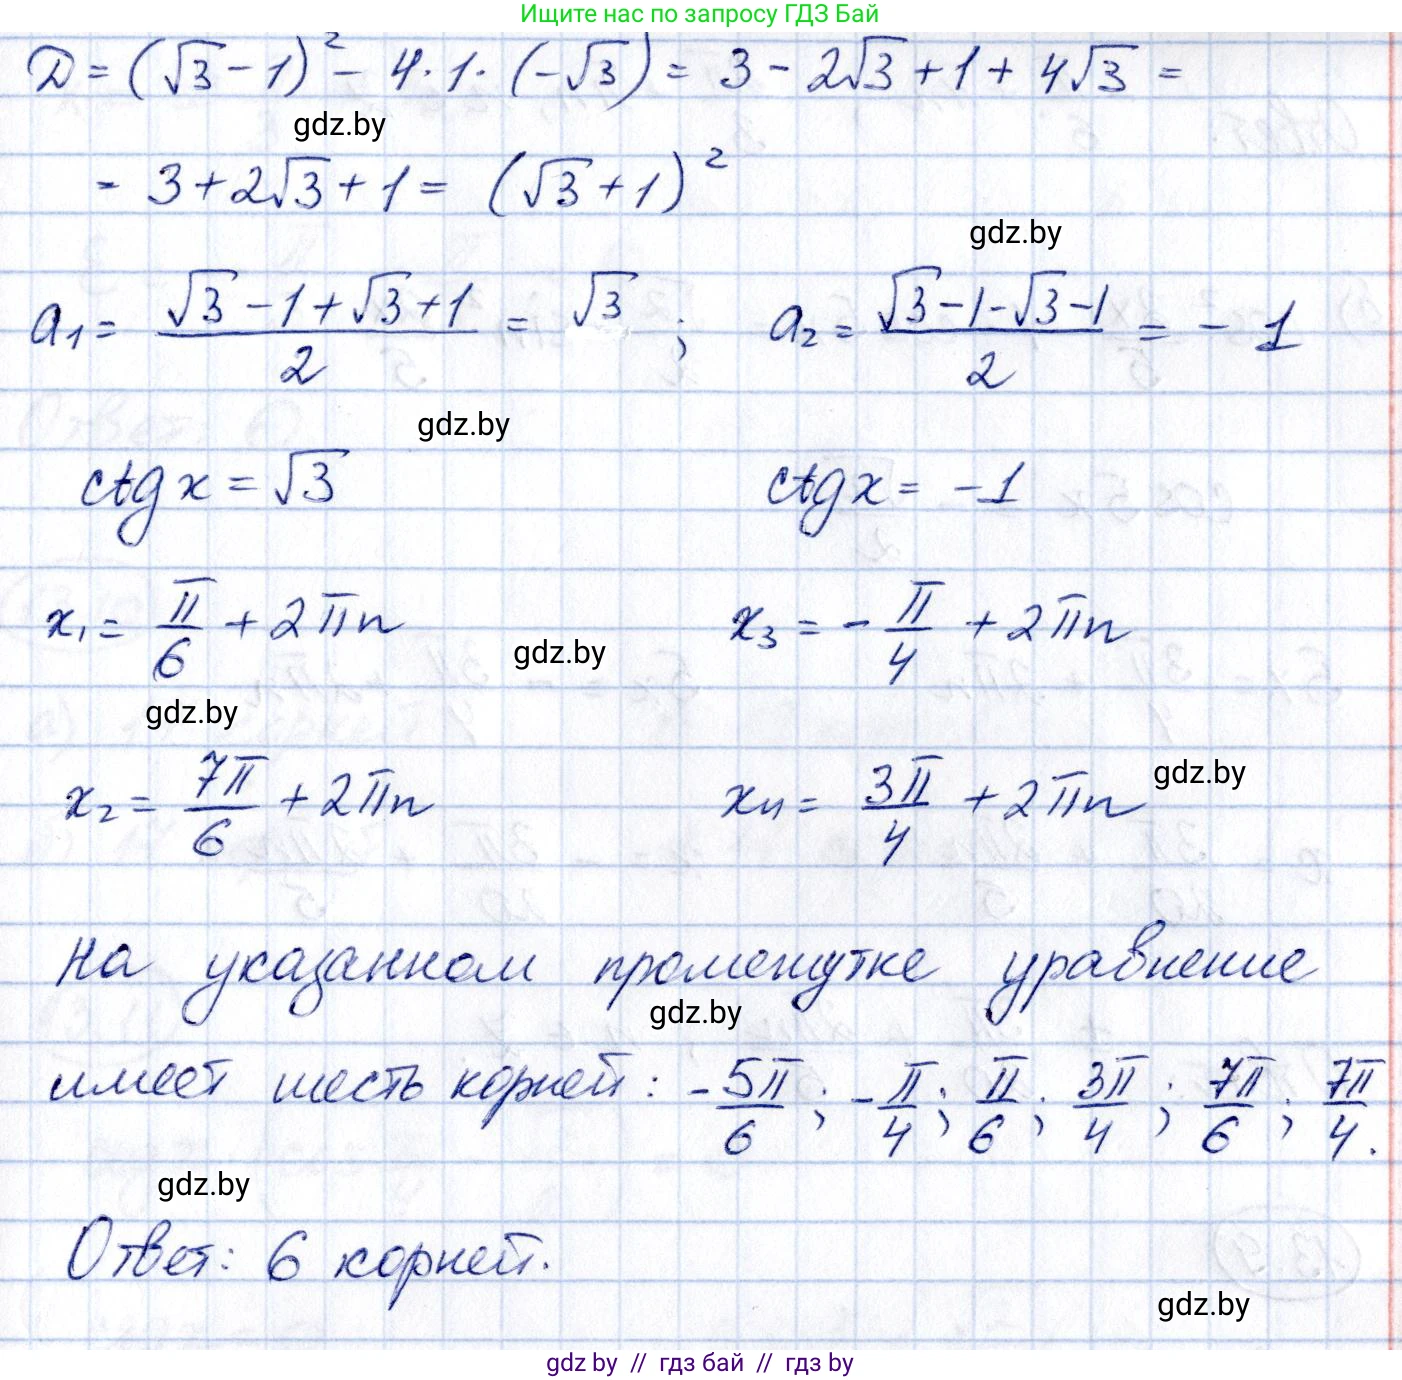 Ищите нас по запросу ГДЗ Бай
D = (√3 - 1)² - 4·1·(-√3) = 3 - 2√3 + 1 + 4√3 =
gdz.by
= 3 + 2√3 + 1 = (√3 + 1)²
gdz.by
a₁ = (√3 - 1 + √3 + 1)/2 = √3 ; a₂ = (√3 - 1 - √3 - 1)/2 = - 1
gdz.by
ctg x = √3 ctg x = -1
x₁ = π/6 + 2πn x₃ = - π/4 + 2πn
gdz.by
gdz.by
x₂ = 7π/6 + 2πn x₄ = 3π/4 + 2πn
gdz.by
На указанном промежутке уравнение
gdz.by
имеет шесть корней: - 5π/6 ; - π/4 ; π/6 ; 3π/4 ; 7π/6 ; 7π/4.
gdz.by
Ответ: 6 корней.
gdz.by
gdz by // гдз бай // гдз by